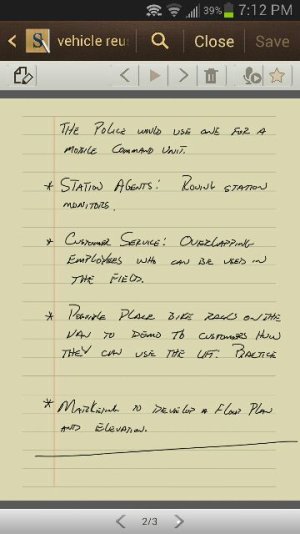 39% 7:12 PM
vehicle reu
Close
Save
THE POLICE WOULD USE ONE FOR A
MOBILE COMMAND UNIT.
* STATION AGENTS: ROVING STATION
MONITORS.
* CUSTOMER SERVICE: OVERLAPPING
EMPLOYEES WHO CAN BE USED IN
THE FIELD.
* POSSIBLE PLACE BIKE RACKS ON THE
VAN TO DEMO TO CUSTOMERS HOW
THEY CAN USE THE LIFT. PRACTICE
* MARKETING TO DEVELOP A FLOOR PLAN
AND ELEVATION.
2/3